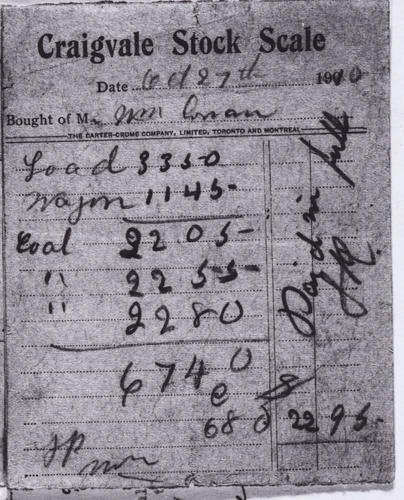 Craigvale Stock Scale
Date Oct 27th 1910
Bought of Mr Wm
THE CARTER-CRUME COMPANY, LIMITED, TORONTO AND MONTREAL
Load 3350
Wagon 1145
Coal 2205
" 2255
" 2280
6740
@
680 2295
Paid in full
JR